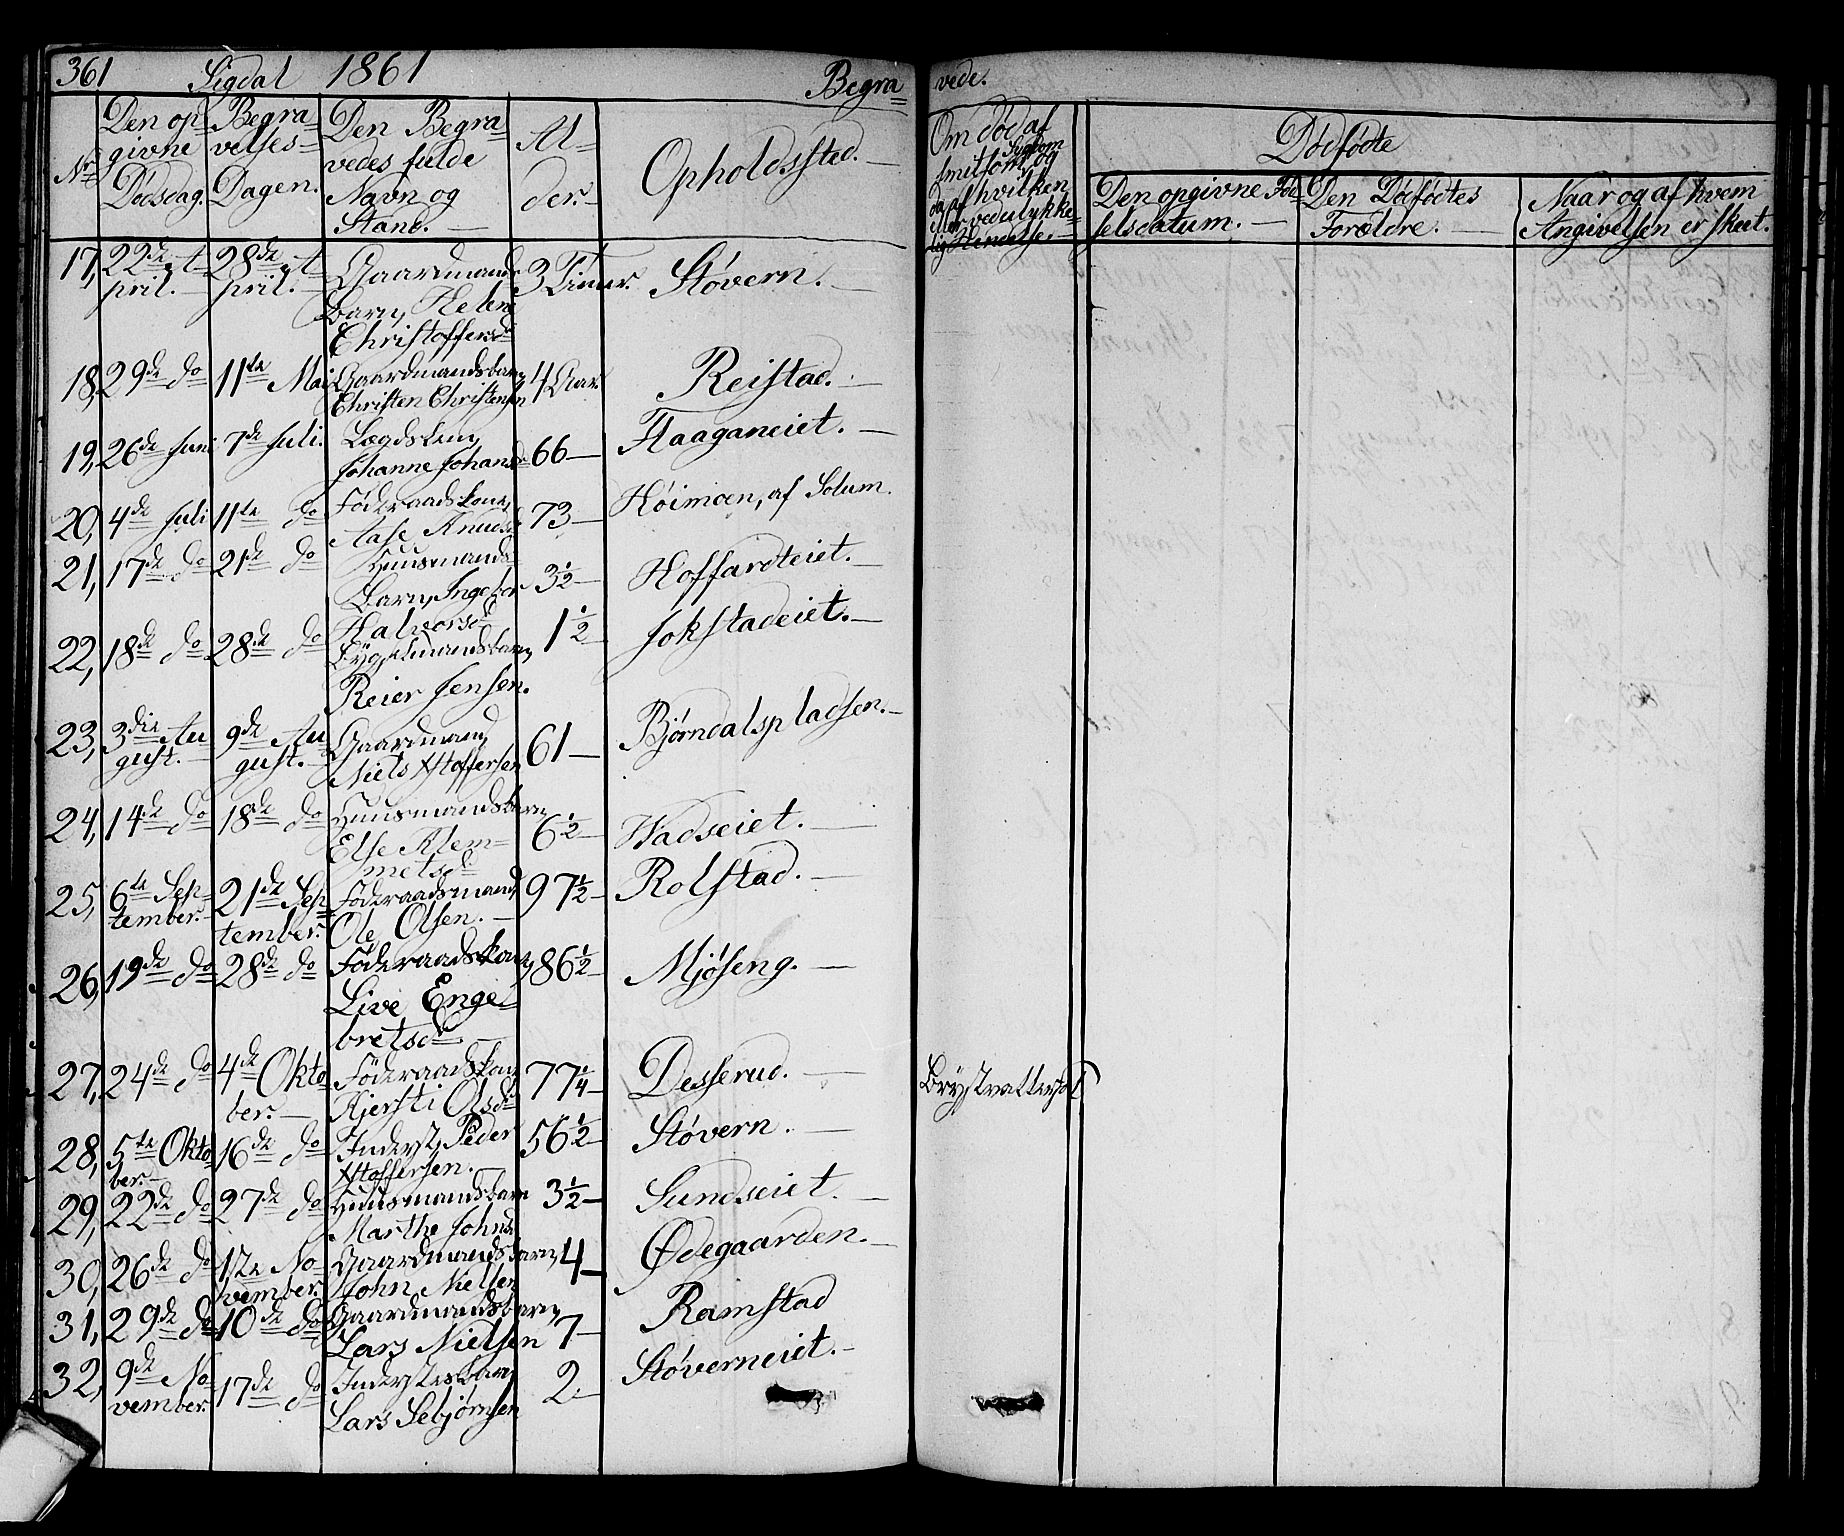 361 Sigdal 1861 Begra= vede.
Nr. Den opgivne Dødsdag. Begravelses= Dagen. Den Begravedes fulde Navn og Stand. Alder. Opholdssted. Om død af smitsom Sygdom og da af hvilken eller ved ulykkelig Hendelse.
Dødfødte
Den opgivne Fødselsdatum. Den Dødfødtes Forældre. Naar og af hvem Angivelsen er skeet.
17, 22de April. 28de April. Gaardmands barn, Helene Christoffersd 3 Timer. Støvern.
18, 29de do 11te Mai Gaardmandsbarn Christen Christensen 4 Aar. Reistad.
19, 26de Juni 7de Juli. Lægdslem Johanne Johansd 66 Haaganeiet.
20, 4de Juli 11te do Föderaadskone, Aase Knudsd 73 Høimoen, af Solum.
21, 17de do 21de do Huusmands Barn, Ingebor Halvorsd 3½ Hoffardteiet.
22, 18de do 28de do Bygselmandsbarn Reier Jensen. 1½ Jokstadeiet.
23, 3die August. 9de August. Gaardmand Niels Xstoffersen 61 Bjørndalspladsen.
24, 14de do 18de do Huusmandsbarn Else Klemmetsd 6½ Hadseiet.
25, 6te September. 21de September. Föderaadsmand Ole Olsen. 97½ Rolstad.
26, 19de do 28de do Föderaadskone Live Engebretsd 86½ Mjøseng.
27, 24de do 4de Oktober. Föderaadskone Kjersti Olsd 77¼ Desserud. Brystvattersot
28, 5te Oktober. 16de do Inderst, Peder Xstoffersen. 56½ Støvern.
29, 22de do 27de do Huusmandsbarn Marthe Johnsd 3½ Sundseiet.
30, 26de do 1te November. Gaardmandsbarn, John Nielsen 4 Ødegaarden.
31, 29de do 10de do Gaardmandsbarn Lars Nielsen 7 Ramstad
32, 9de November. 17de do Inderstesbarn Lars Sebjørnsen 2 Støverneiet.